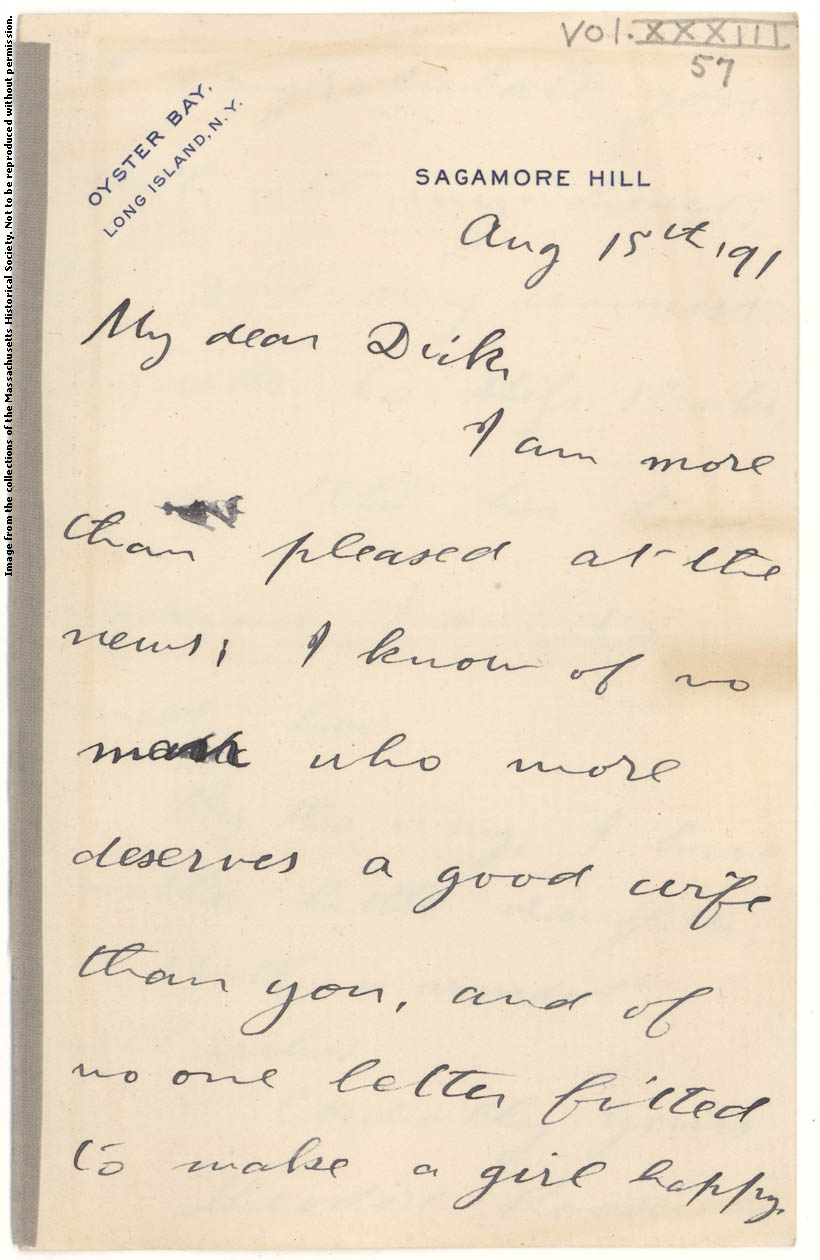 Vol. XXXIII
57
OYSTER BAY,
LONG ISLAND, N.Y.
SAGAMORE HILL
Aug 15th '91
My dear Dick,
I am more
than pleased at the
news; I know of no
man who more
deserves a good wife
than you, and of
no one better fitted
to make a girl happy.
Image from the collections of the Massachusetts Historical Society. Not to be reproduced without permission.